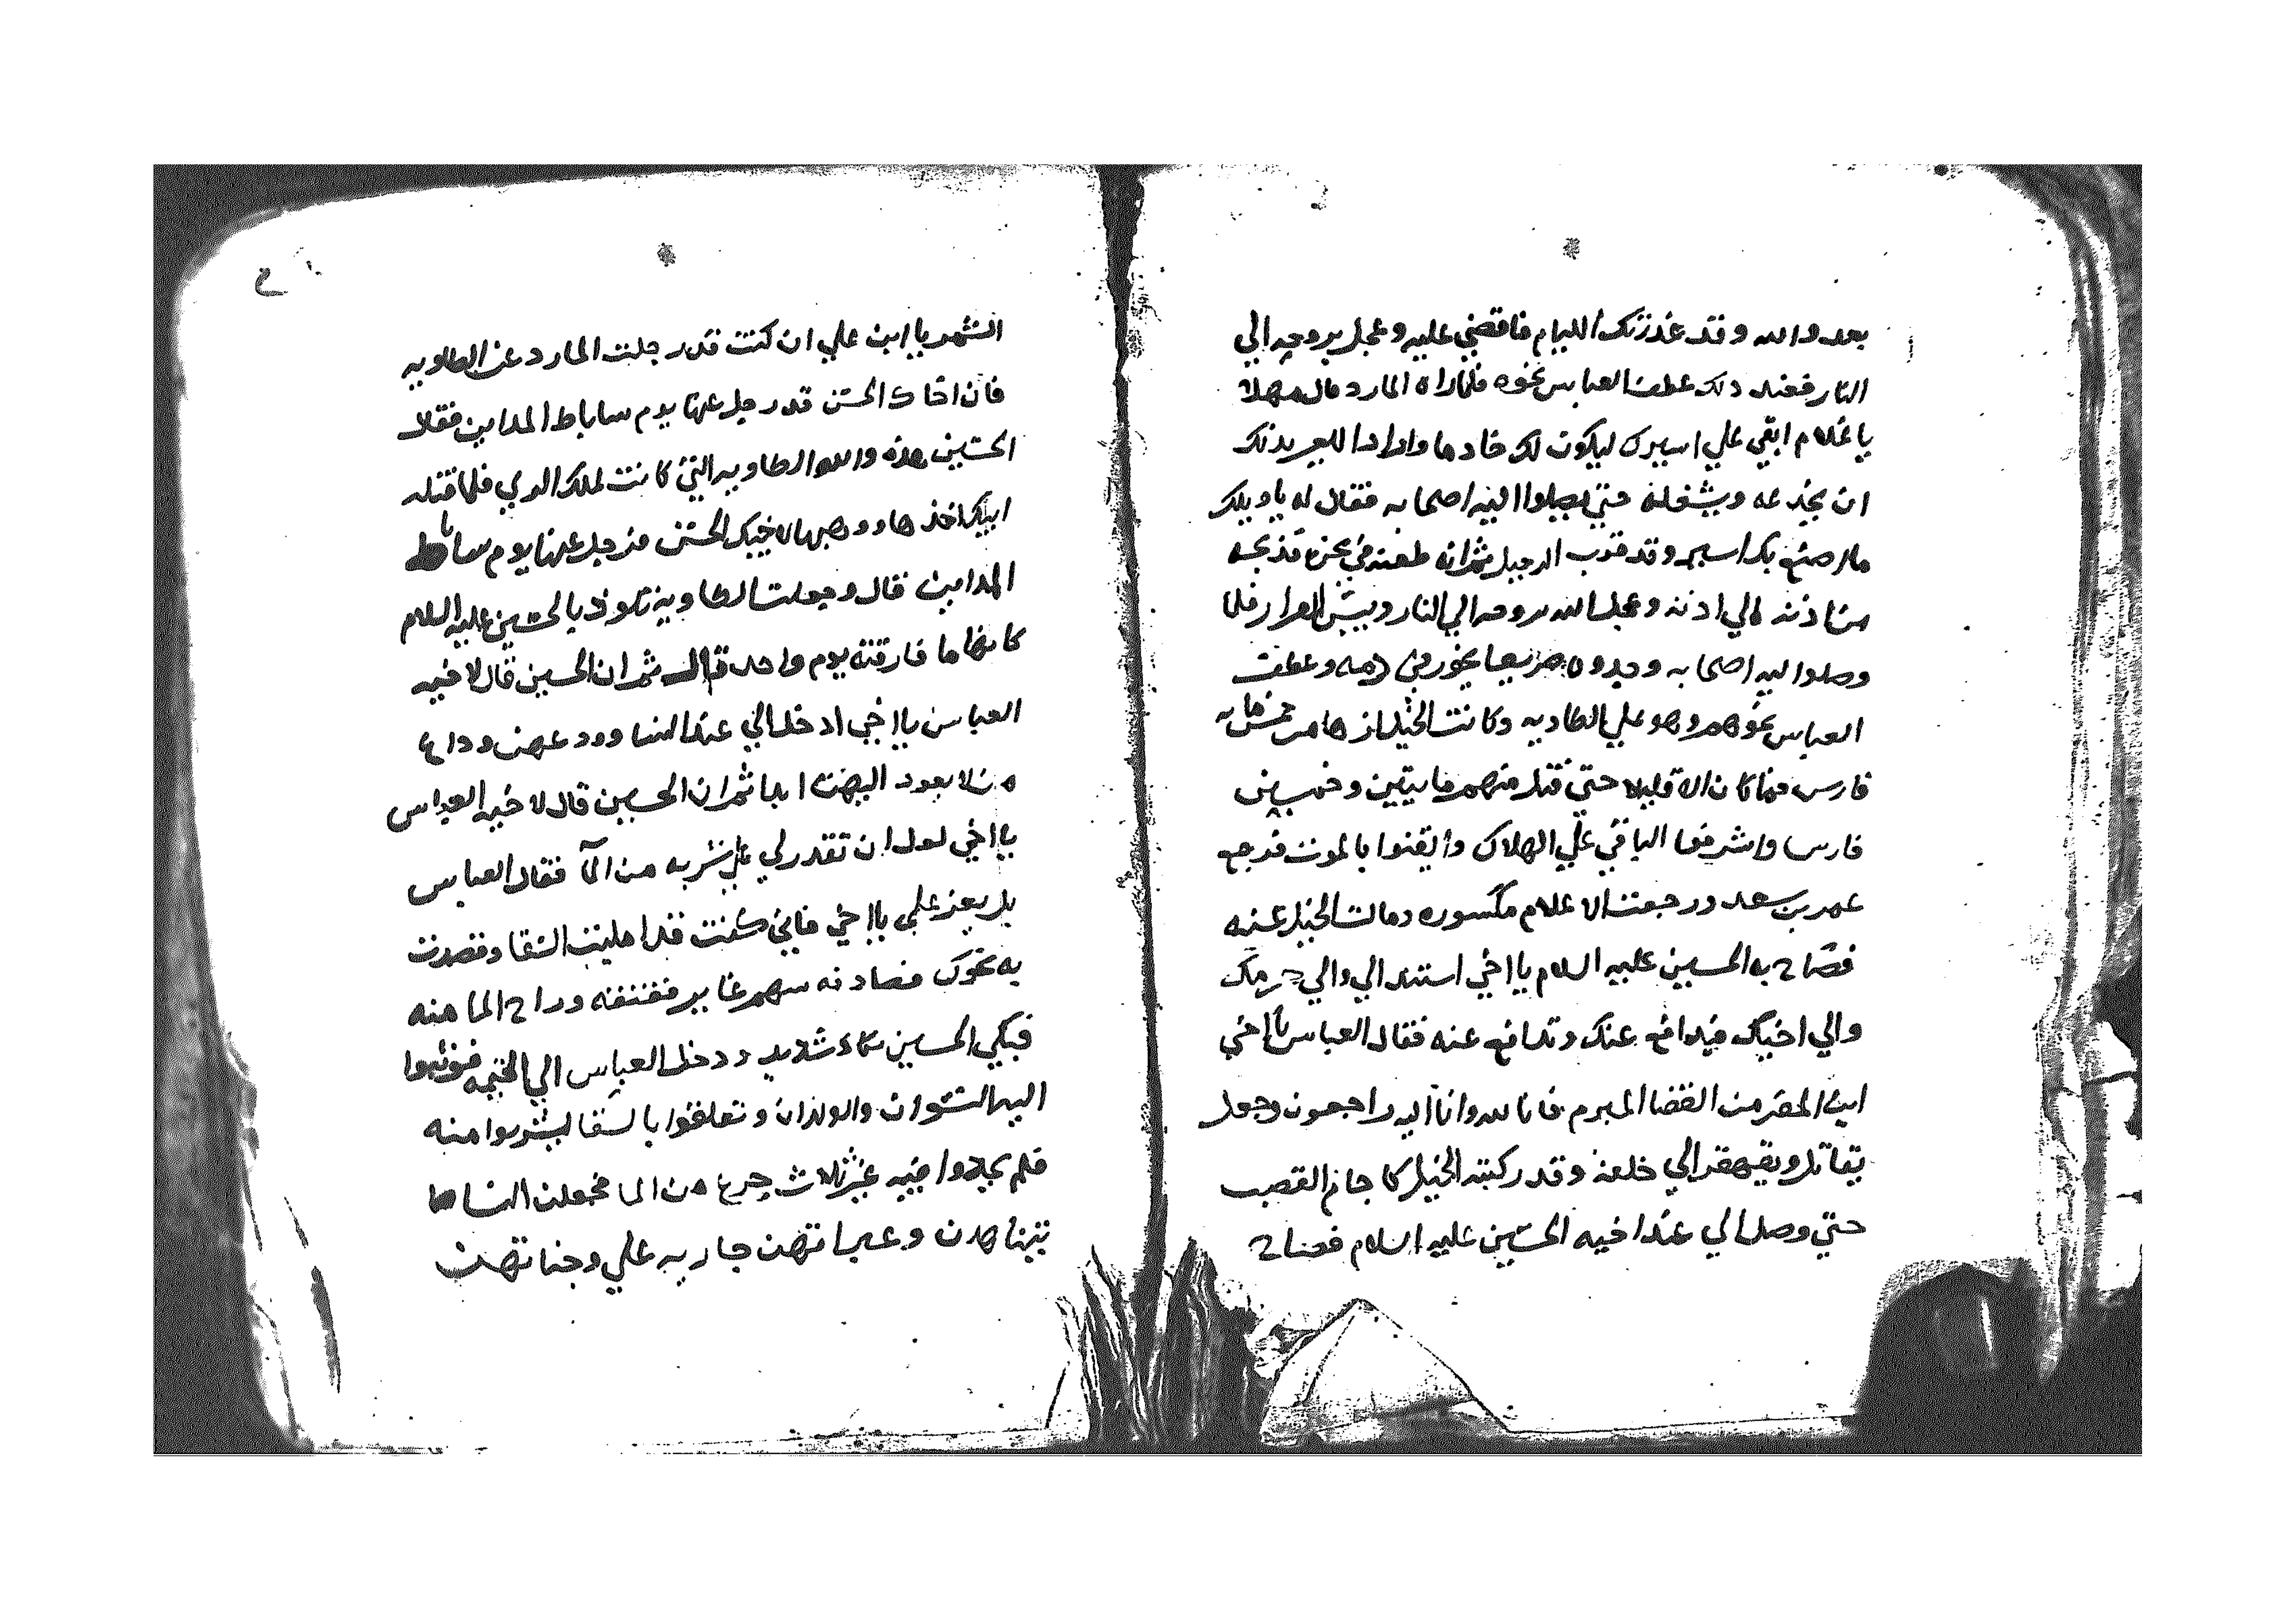 بعدو الله وقد غدرتك الليام فاقضي عليه وعجل بروحه الي
النار فعند دلك عطف العباس نحوه فلما راه المارد قال مهلا
يا غلام ابقي علي اسيرك ليكون لك خادما وانما اراد اللعين بذلك
ان يخدعه ويشغله حتي يصلوا اليه اصحابه فقال له يا ويلك
ما اصنع بك اسير وقد قرب الرحيل ثم انه طعنه في نحره فذبحه
من اذنه الي اذنه وعجل الله بروحه الي النار وبيس القرار فلما
وصلوا اليه اصحابه وجدوه صريعا يخور في دمه وعطف
العباس نحوهم وهو علي الطاويه وكانت الخيل ازهامن خمسمايه
فارس فما كان الا قليلا حتي قتل منهم مايتين وخمسين
فارس واشرفوا الباقي علي الهلاك وايقنوا بالموت فرجع
عمر بن سعد ورجعت الاعلام مكسوره ومالت الخيل عنه
فصاح به الحسين عليه السلام يا اخي استند الي والي حرمك
والي اخيك فيدافع عنك وتدافع عنه فقال العباس يا اخي
اين المفر من القضا المبرم فانا لله وانا اليه راجعون وجعل
يقاتل ويقهقر الي خلفه وقد ركبته الخيل كاجام القصب
حتي وصل الي عند اخيه الحسين عليه السلام فصاح
الشمر يا ابن علي ان كنت قدر جلت المارد عن الطاويه
فان اخاك الحسن قد رجل عنها يوم ساباط المداين فقال
الحسين هذه والله الطاويه التي كانت لملك الري فلما قتله
ابيك اخذها ووهبها لاخيك الحسن فرجل عنها يوم ساباط
المداين قال وجعلت الطاويه تلوذ بالحسين عليه السلام
كانها ما فارقته يوم واحد قال ثم ان الحسين قال لاخيه
العباس يا اخي ادخل الي عند النسا وودعهن وداع
من لا يعود اليهن ابدا ثم ان الحسين قال لاخيه العباس
يا اخي لعل ان تقدر لي علي شربه من المآ فقال العباس
بل يعز علي يا اخي فاني كنت قد امليت السقا وقصدت
به نحوك فصادفه سهم غاير فنتفه وراح الما منه
فبكي الحسين بكاء شديد ودخل العباس الي الخيمه فوثبوا
اليه النسوان والولدان وتعلقوا بالسقا ليشربوا منه
فلم يجدوا فيه غير ثلاث جرع من الما فجعلن النسا
يتناهدن وعبراتهن جاريه علي وجناتهن